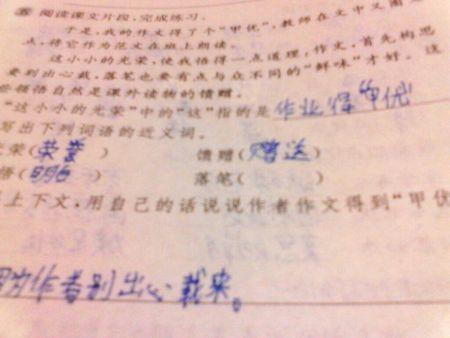 五 阅读课文片段,完成练习。
于是,我的作文得了个“甲优”,教师在文中又圈
点,将它作为范文在班上朗读。
这小小的光荣,使我悟得一点道理,作文,首先构思
要别出心裁,落笔也要有点与众不同的“鲜味”才好。这
些领悟自然是课外读物的馈赠。
“这小小的光荣”中的“这”指的是 作业得“甲优”
写出下列词语的近义词。
光荣(荣誉) 馈赠(赠送)
悟(明白) 落笔( )
上下文,用自己的话说说作者作文得到“甲优
因为作者别出心裁来。